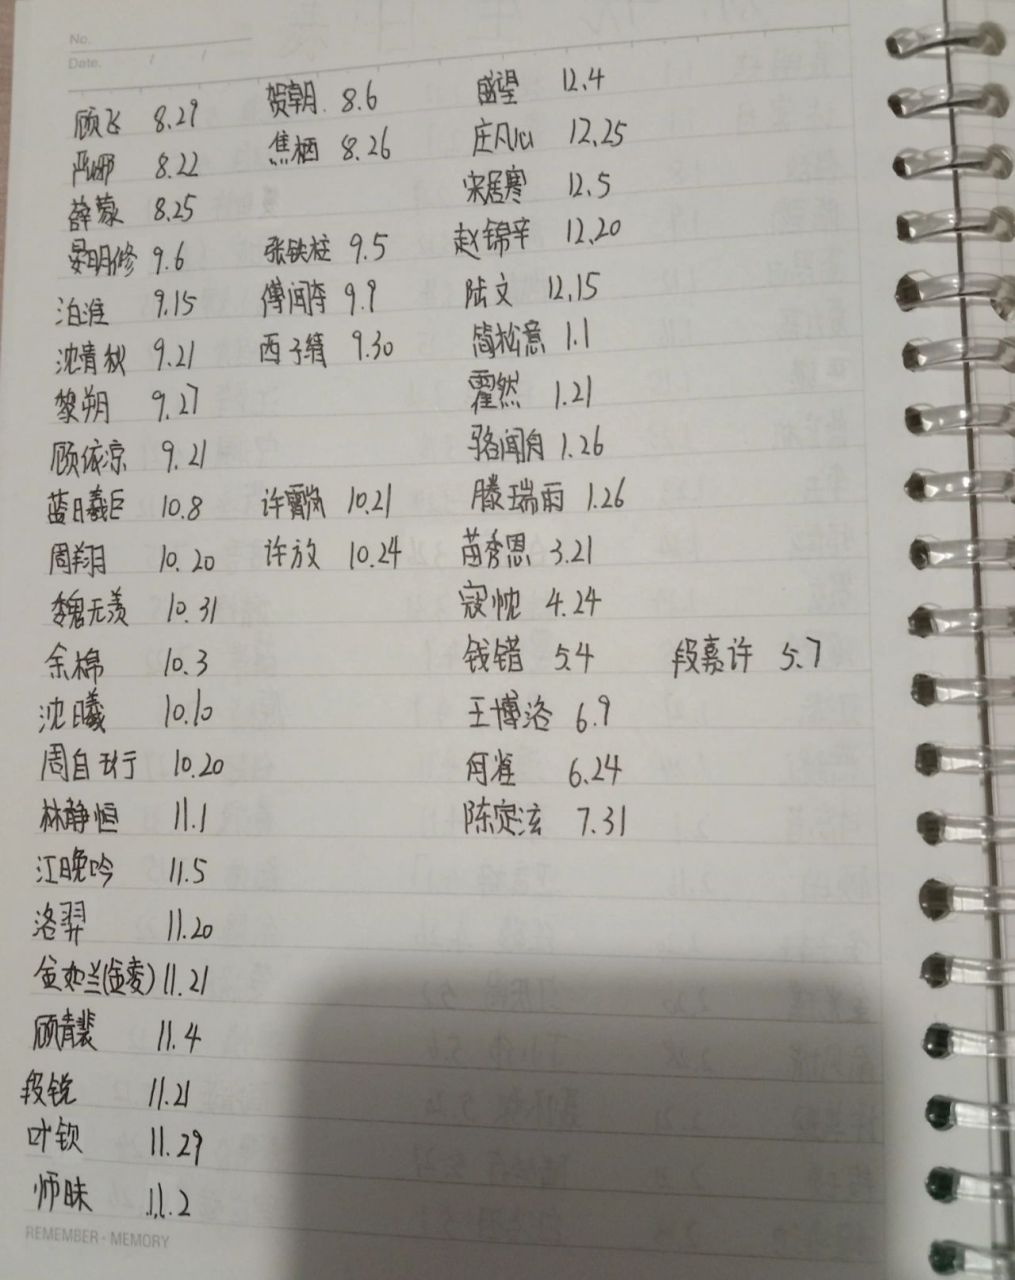 No.
Date.
顾飞 8.29 贺朝 8.6 盛望 12.4
严娜 8.22 焦栖 8.26 庄凡心 12.25
薛蒙 8.25 宋居寒 12.5
晏明修 9.6 张铁柱 9.5 赵锦辛 12.20
泊淮 9.15 傅闻夺 9.9 陆文 12.15
沈青秋 9.21 西子绪 9.30 简松意 1.1
黎朔 9.27 霍然 1.21
顾依凉 9.21 骆闻舟 1.26
蓝曦臣 10.8 许霄岚 10.21 滕瑞雨 1.26
周翔 10.20 许放 10.24 苗秀恩 3.21
魏无羡 10.31 寇忱 4.24
余棉 10.3 钱错 5.4 段嘉许 5.7
沈曦 10.10 王博洛 6.9
周自珩 10.20 何雀 6.24
林静恒 11.1 陈定泫 7.31
江晚吟 11.5
洛羿 11.20
金如兰(金凌) 11.21
顾青裴 11.4
段锐 11.21
叶钦 11.29
师昧 11.2
REMEMBER - MEMORY